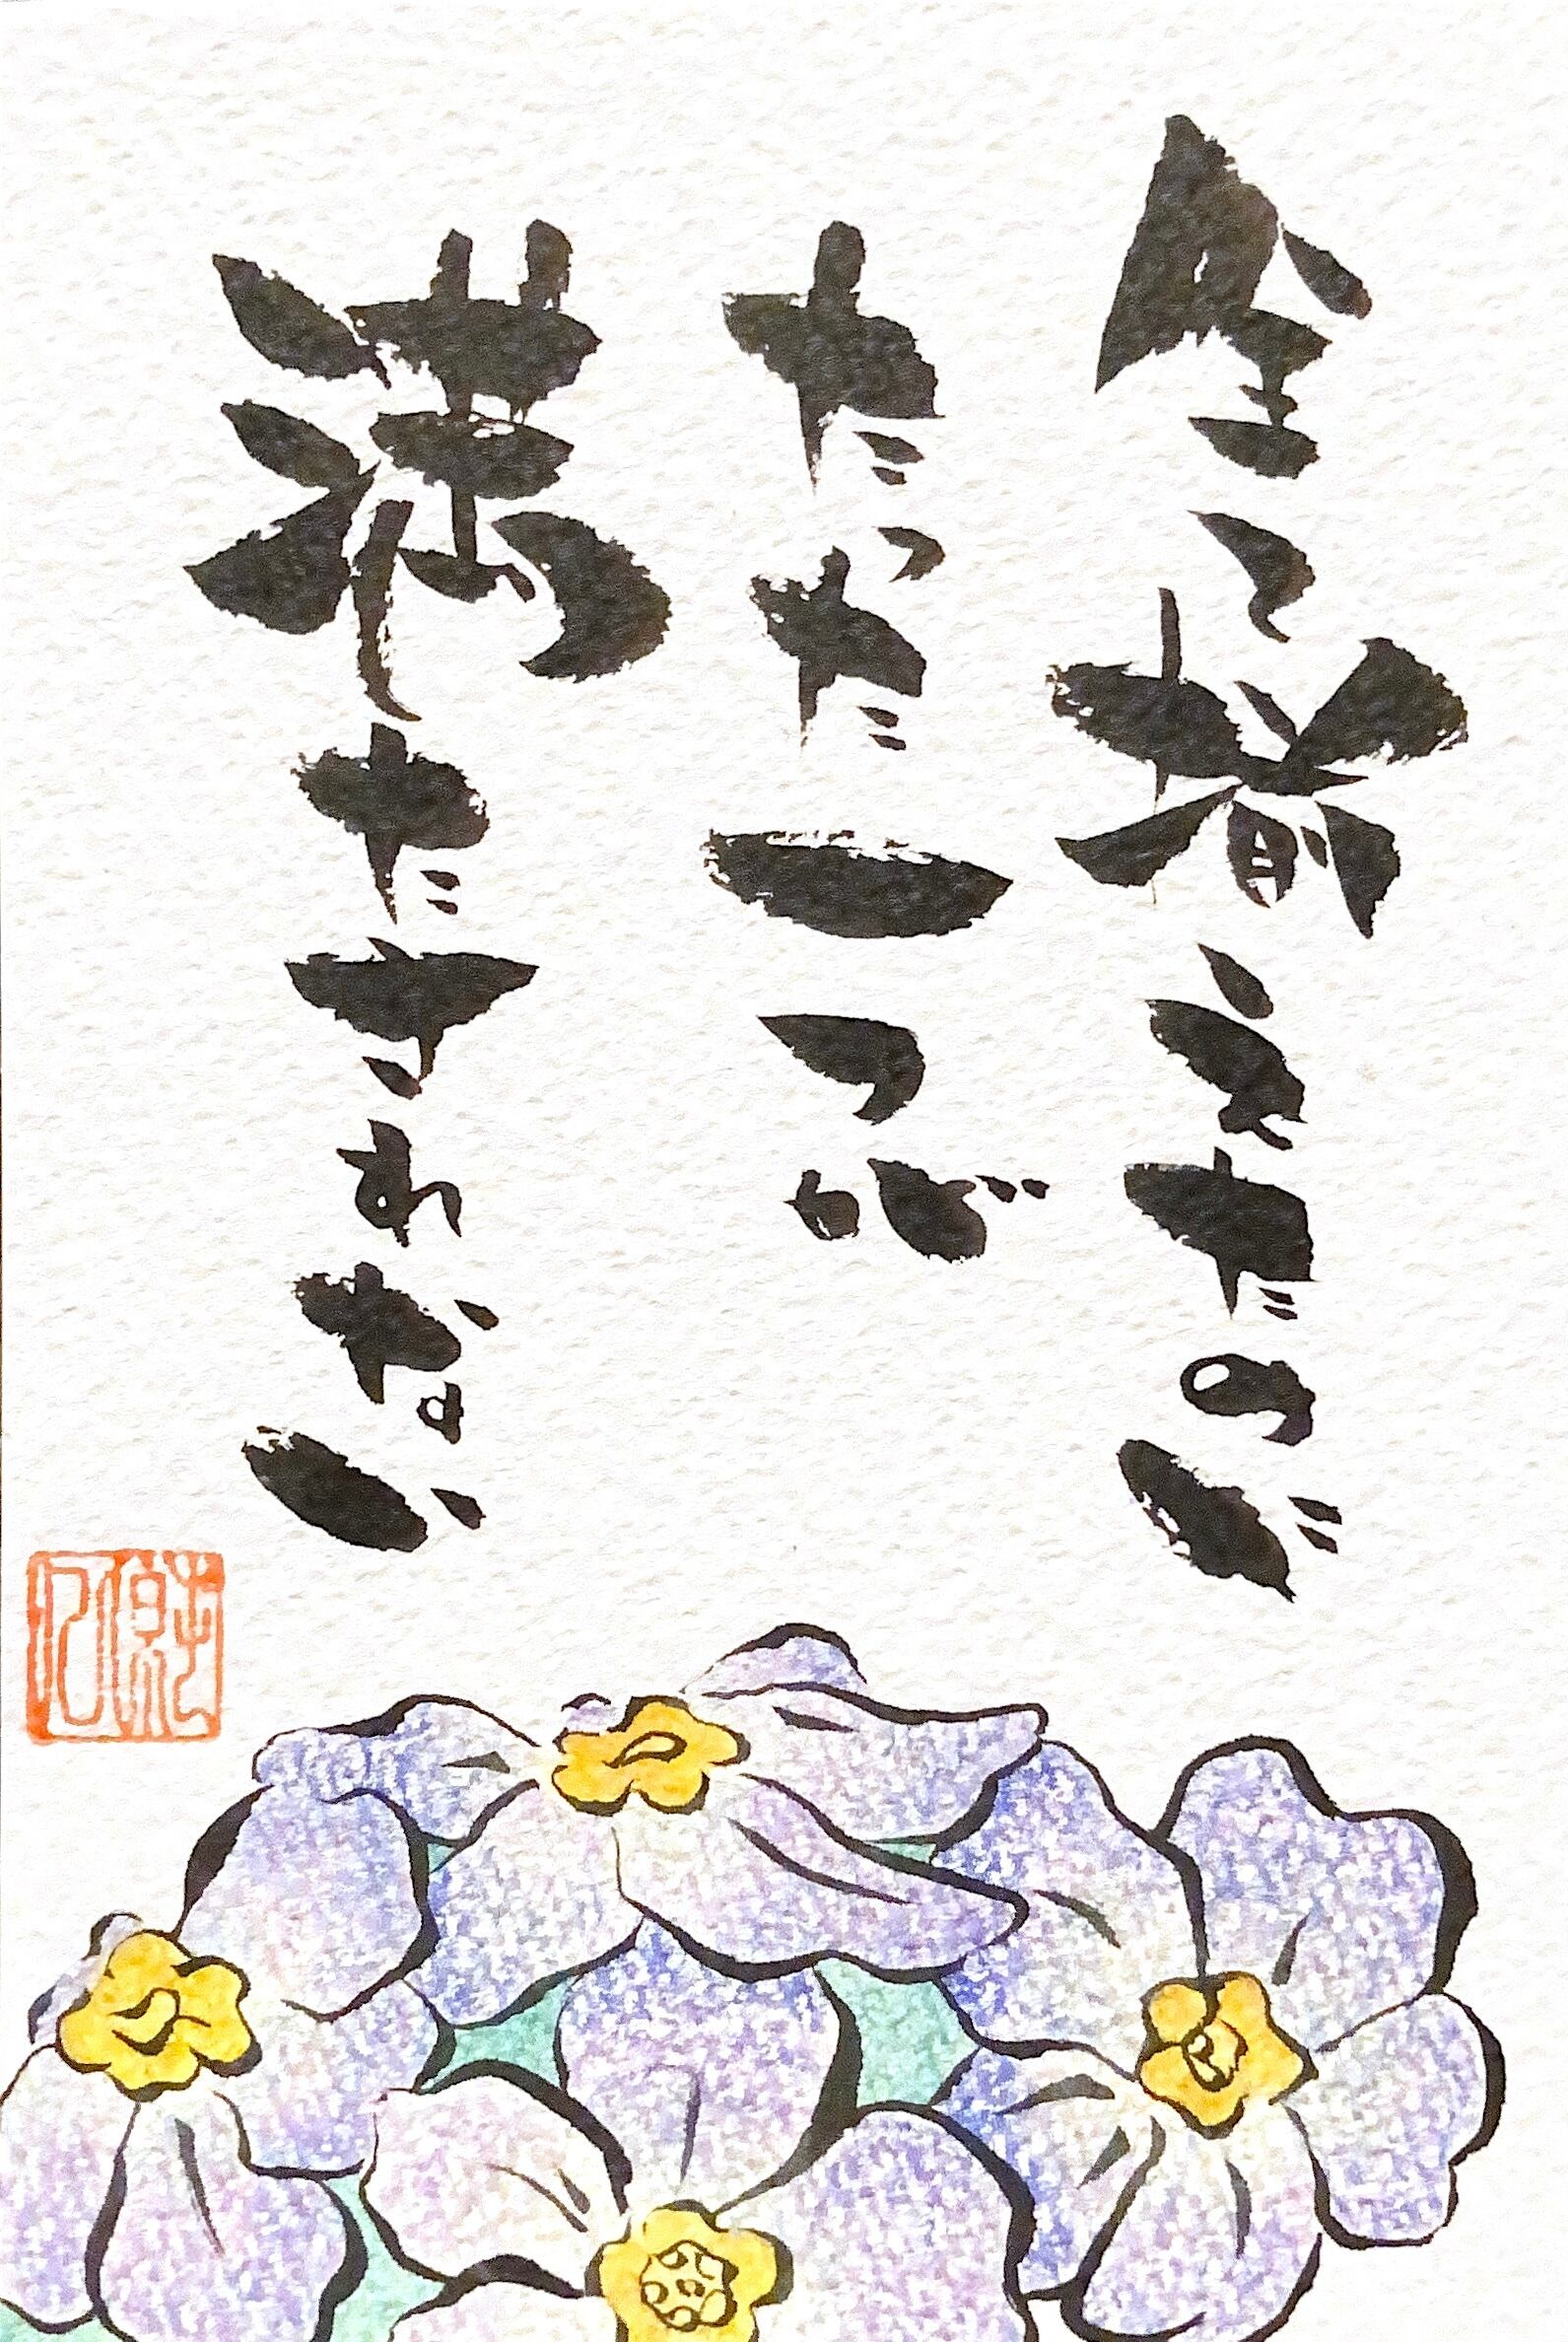 全て揃えたのに
たった一つが
満たされない